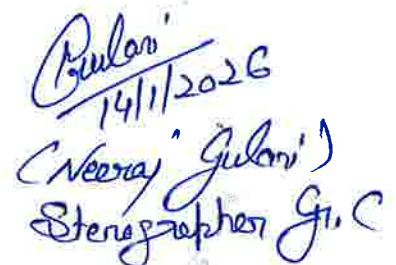 Gulani
14/1/2026
(Neeraj Gulani)
Stenographer Gr. C